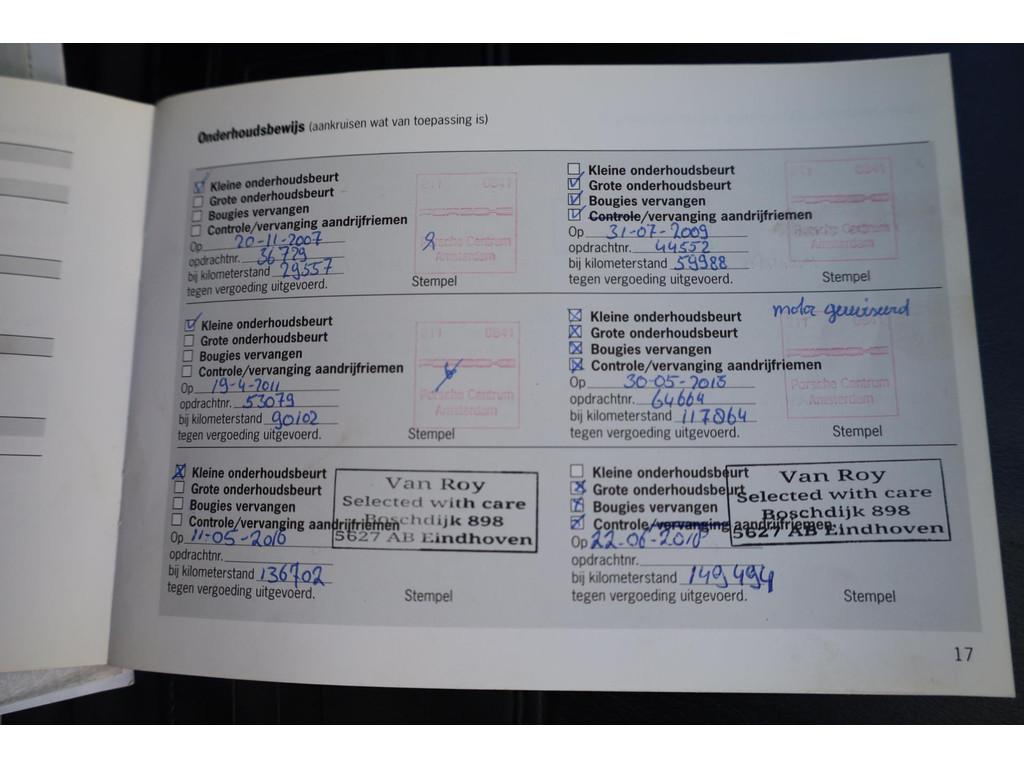 Onderhoudsbewijs (aankruisen wat van toepassing is)
Kleine onderhoudsbeurt
Grote onderhoudsbeurt
Bougies vervangen
Controle/vervanging aandrijfriemen
Op 20-11-2007
opdrachtnr. 36729
bij kilometerstand 29557
tegen vergoeding uitgevoerd.
Stempel
0841
Porsche Centrum
Amsterdam
Kleine onderhoudsbeurt
Grote onderhoudsbeurt
Bougies vervangen
Controle/vervanging aandrijfriemen
Op 31-07-2009
opdrachtnr. 44552
bij kilometerstand 59988
tegen vergoeding uitgevoerd.
Stempel
Porsche Centrum
Amsterdam
Kleine onderhoudsbeurt
Grote onderhoudsbeurt
Bougies vervangen
Controle/vervanging aandrijfriemen
Op 19-4-2011
opdrachtnr. 53079
bij kilometerstand 90102
tegen vergoeding uitgevoerd.
Stempel
0841
Porsche Centrum
Amsterdam
motor gereviseerd
Kleine onderhoudsbeurt
Grote onderhoudsbeurt
Bougies vervangen
Controle/vervanging aandrijfriemen
Op 30-05-2013
opdrachtnr. 64664
bij kilometerstand 117864
tegen vergoeding uitgevoerd.
Stempel
Porsche Centrum
Amsterdam
Kleine onderhoudsbeurt
Grote onderhoudsbeurt
Bougies vervangen
Controle/vervanging aandrijfriemen
Op 11-05-2016
opdrachtnr.
bij kilometerstand 136702
tegen vergoeding uitgevoerd.
Stempel
Van Roy
Selected with care
Boschdijk 898
5627 AB Eindhoven
Kleine onderhoudsbeurt
Grote onderhoudsbeurt
Bougies vervangen
Controle/vervanging aandrijfriemen
Op 22-06-2018
opdrachtnr.
bij kilometerstand 149494
tegen vergoeding uitgevoerd.
Stempel
Van Roy
Selected with care
Boschdijk 898
5627 AB Eindhoven
17